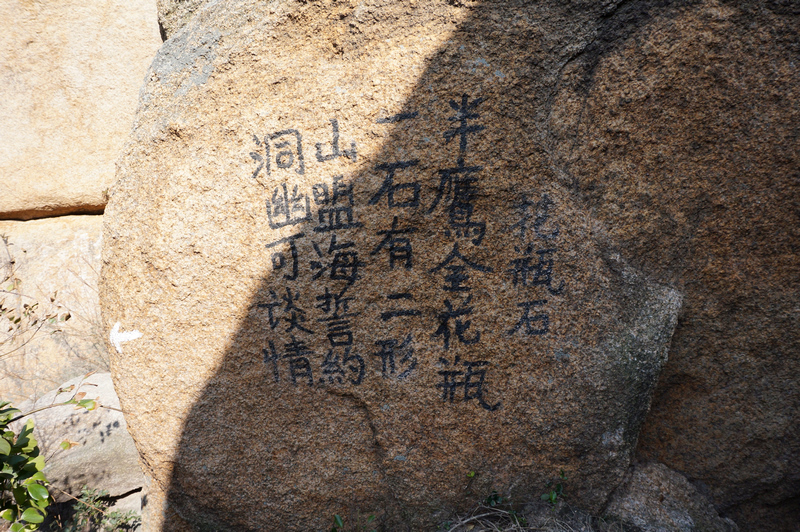 花瓶石
半鹰全花瓶
一石有二形
山盟海誓約
洞幽可谈情